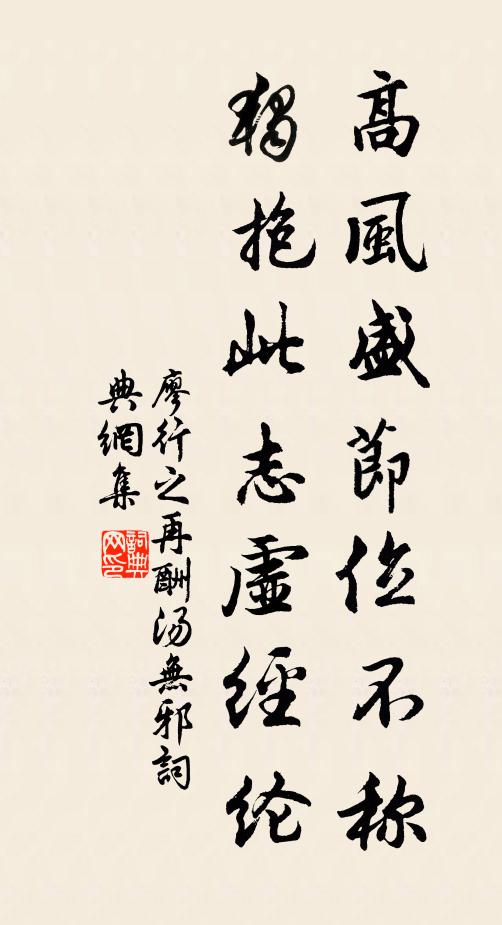 高風盛節位不称
獨抱此志虛經纶
廖行之再酬汤無邪詞
典網集
詞典网印